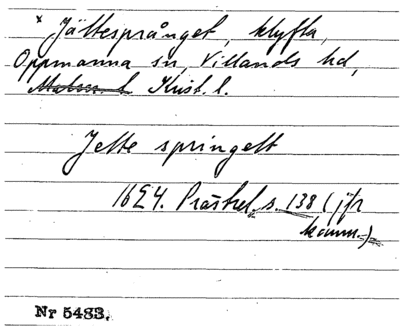 x Jättesprånget, klyfta,
Oppmanna sn, Villands hd,
Krist. l.
Jette springett
1624. Prästrel. s. 138 (jfr
komm.)
Nr 5483.